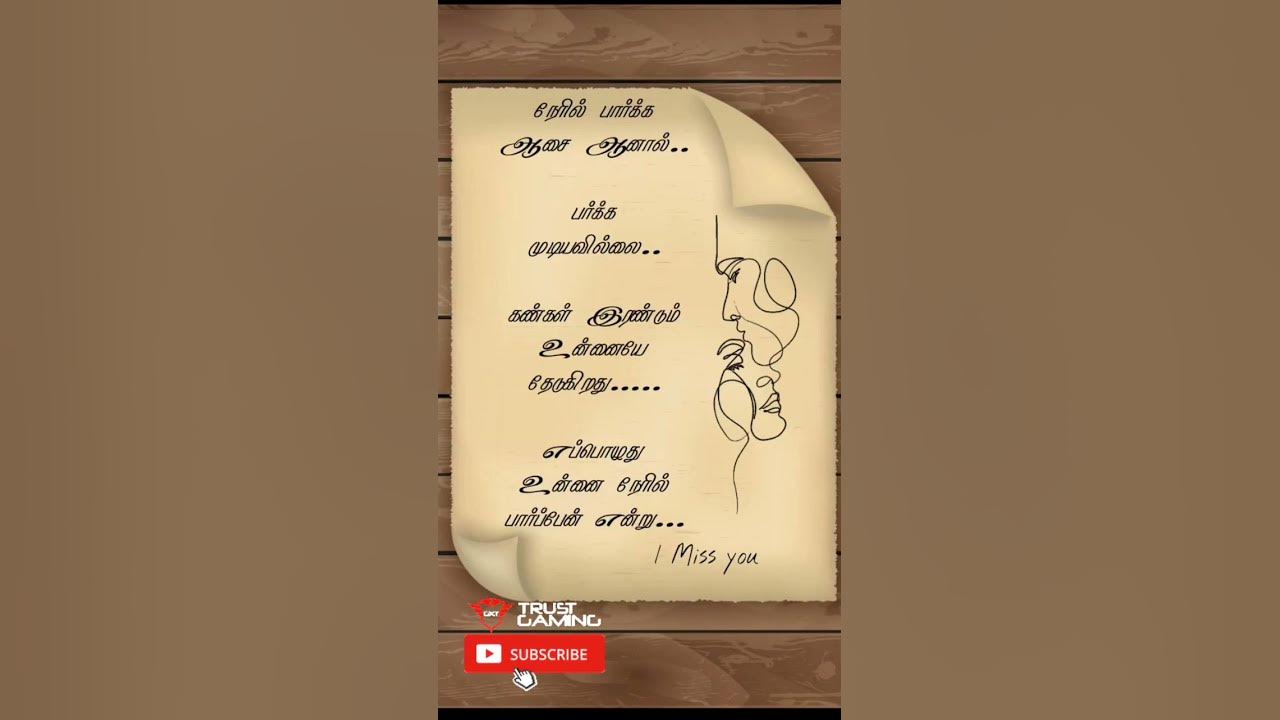 நேரில் பார்க்க
ஆசை ஆனால்..
பர்க்க
முடியவில்லை..
கண்கள் இரண்டும்
உன்னையே
தேடுகிறது.....
எப்பொழுது
உன்னை நேரில்
பார்ப்பேன் என்று...
I Miss you
GXT TRUST
GAMING
SUBSCRIBE